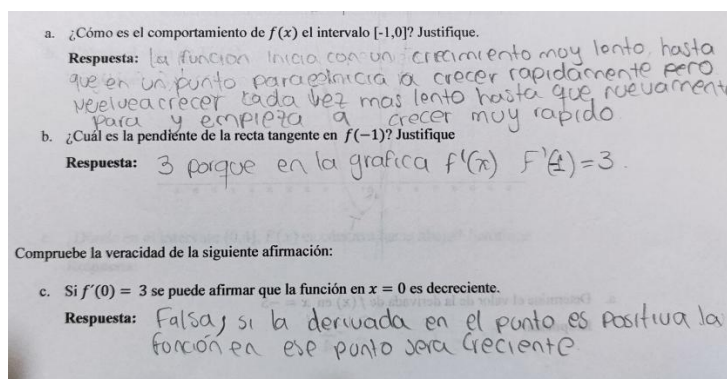 a. ¿Cómo es el comportamiento de f(x) el intervalo [-1,0]? Justifique.
Respuesta: la función Inicia con un crecimiento muy lento, hasta
que en un punto para e Inicia a crecer rapidamente pero
vuelve a crecer cada vez mas lento hasta que nuevament
para y empieza a crecer muy rapido
b. ¿Cuál es la pendiente de la recta tangente en f(−1)? Justifique
Respuesta: 3 porque en la grafica f'(x) F'(-1)=3.
Compruebe la veracidad de la siguiente afirmación:
c. Si f′(0) = 3 se puede afirmar que la función en x = 0 es decreciente.
Respuesta: Falsa, si la derivada en el punto es Positiva la
función en ese punto sera Creciente